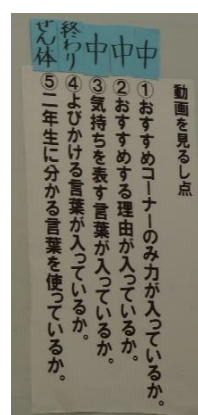 動画を見るし点
中①おすすめコーナーのみ力が入っているか。
中②おすすめする理由が入っているか。
中③気持ちを表す言葉が入っているか。
終わり④よびかける言葉が入っているか。
ぜん体⑤二年生に分かる言葉を使っているか。